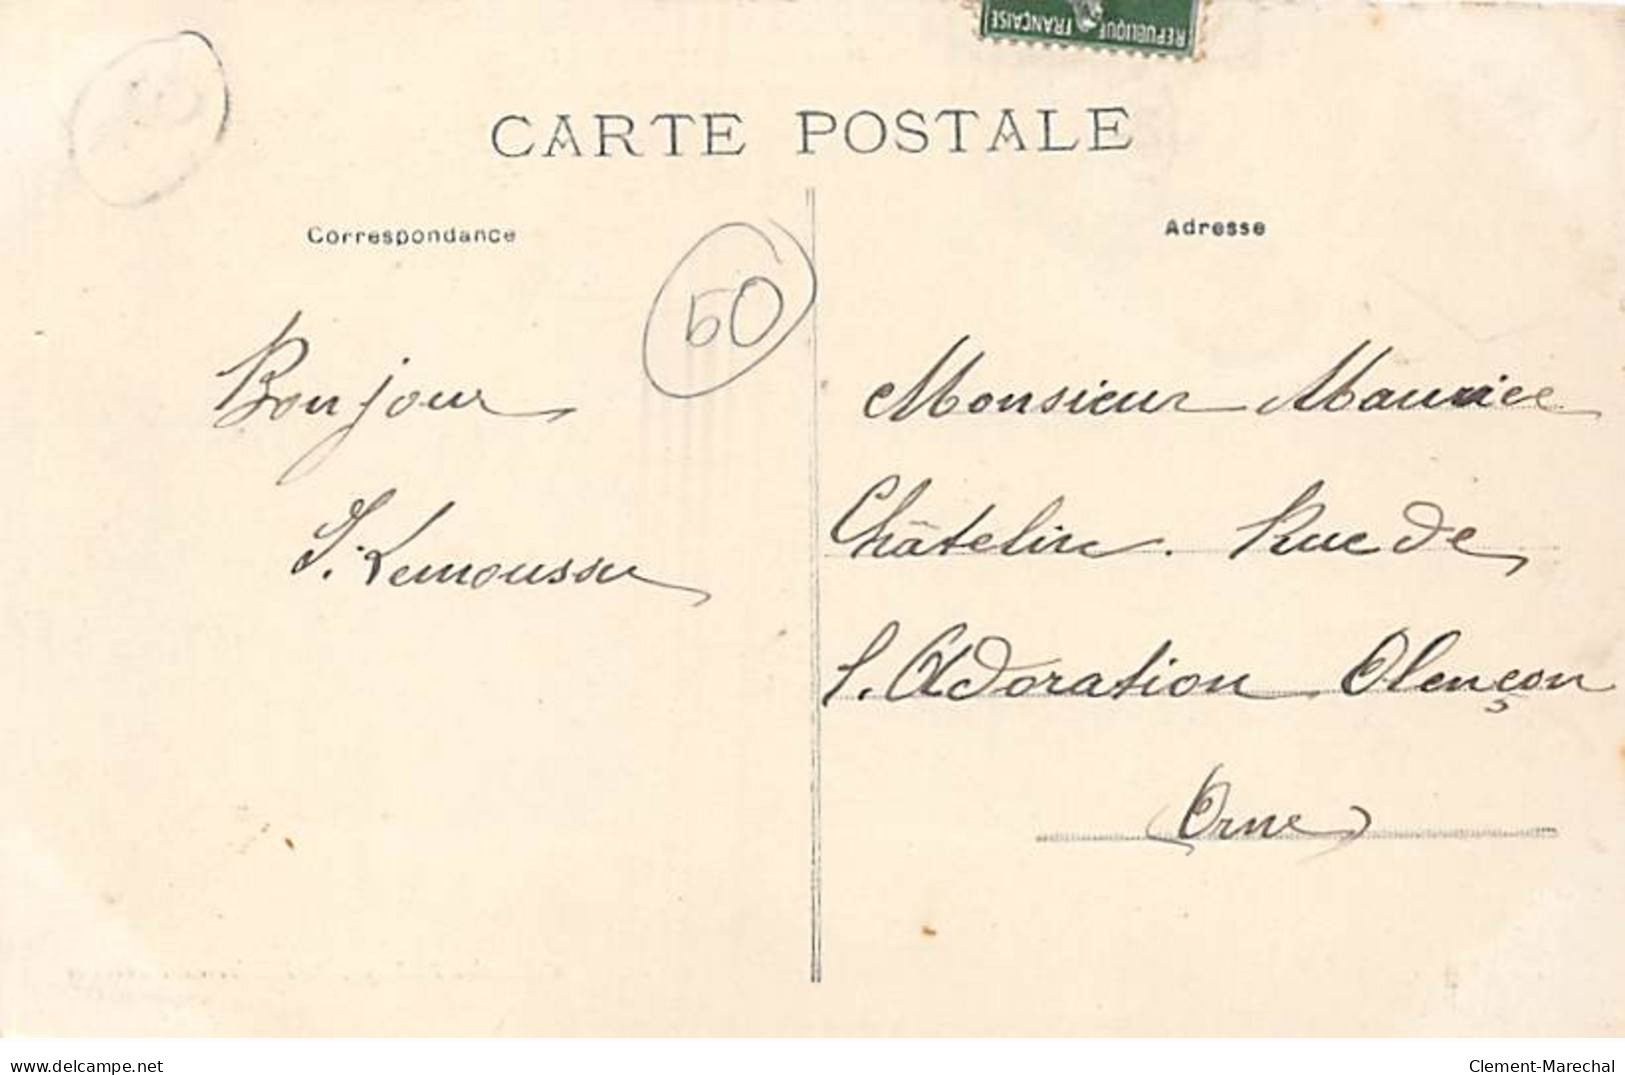 RÉPUBLIQUE FRANÇAISE
CARTE POSTALE
Correspondance
Adresse
50
Bonjour
Monsieur Maurice
Châtelin. Rue de
l'Adoration Alençon
(Orne)
Lemoussu
delcampe.net
Clement-Marechal